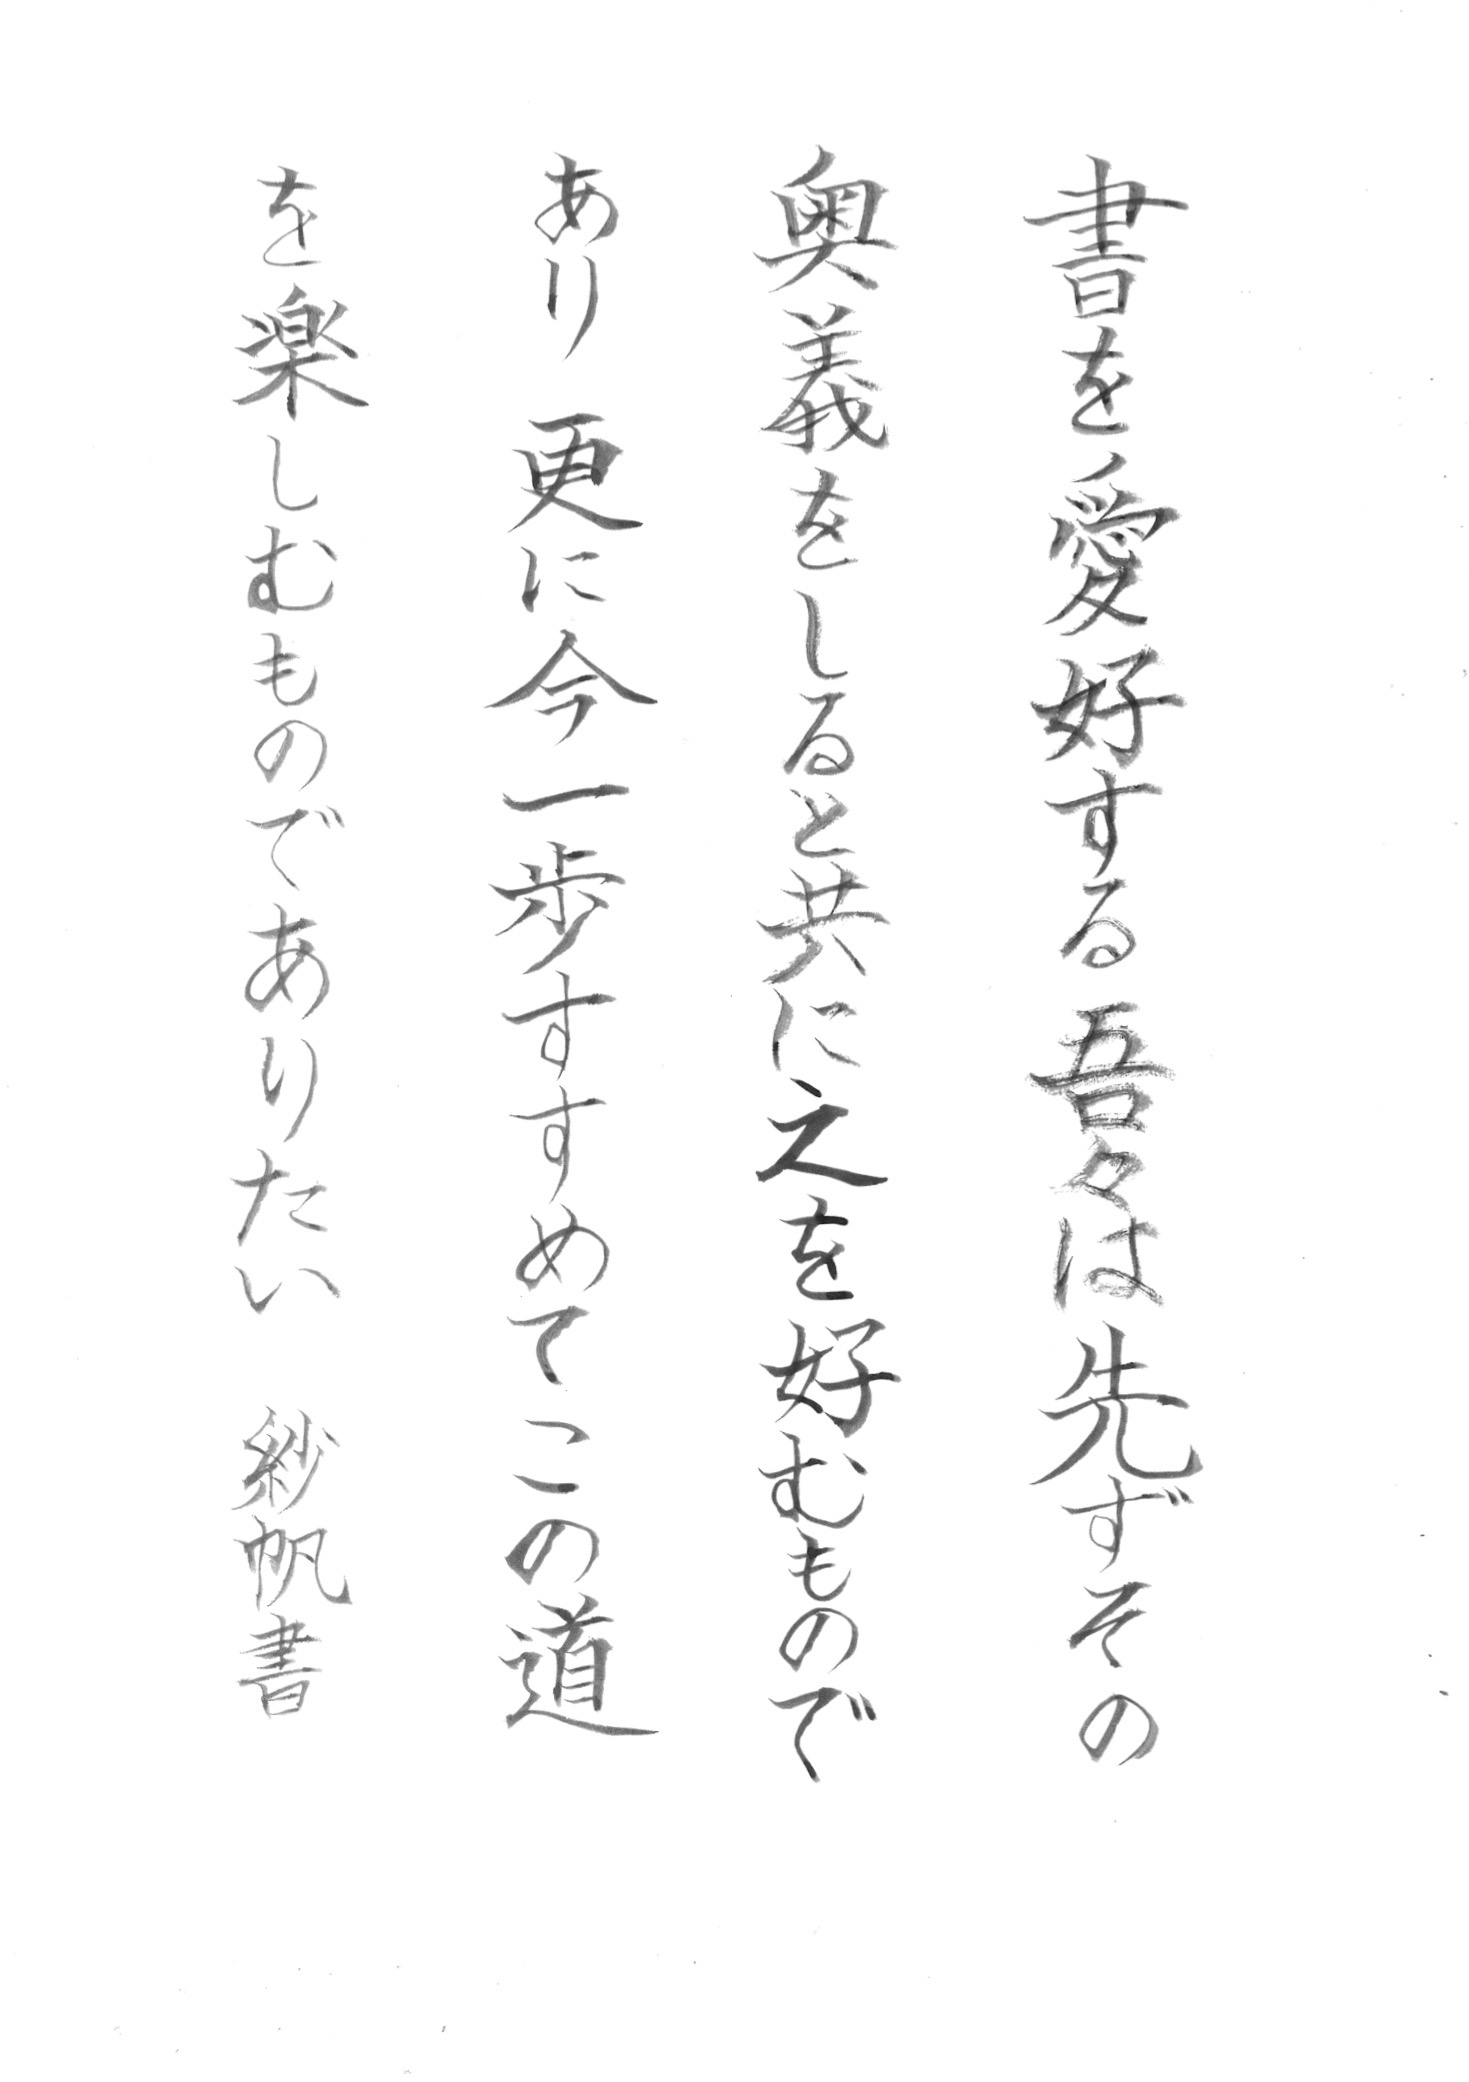 書を愛好する吾々は先ずその
奥義をしると共に之を好むもので
あり 更に今一歩すすめてこの道
を楽しむものでありたい 紗帆書